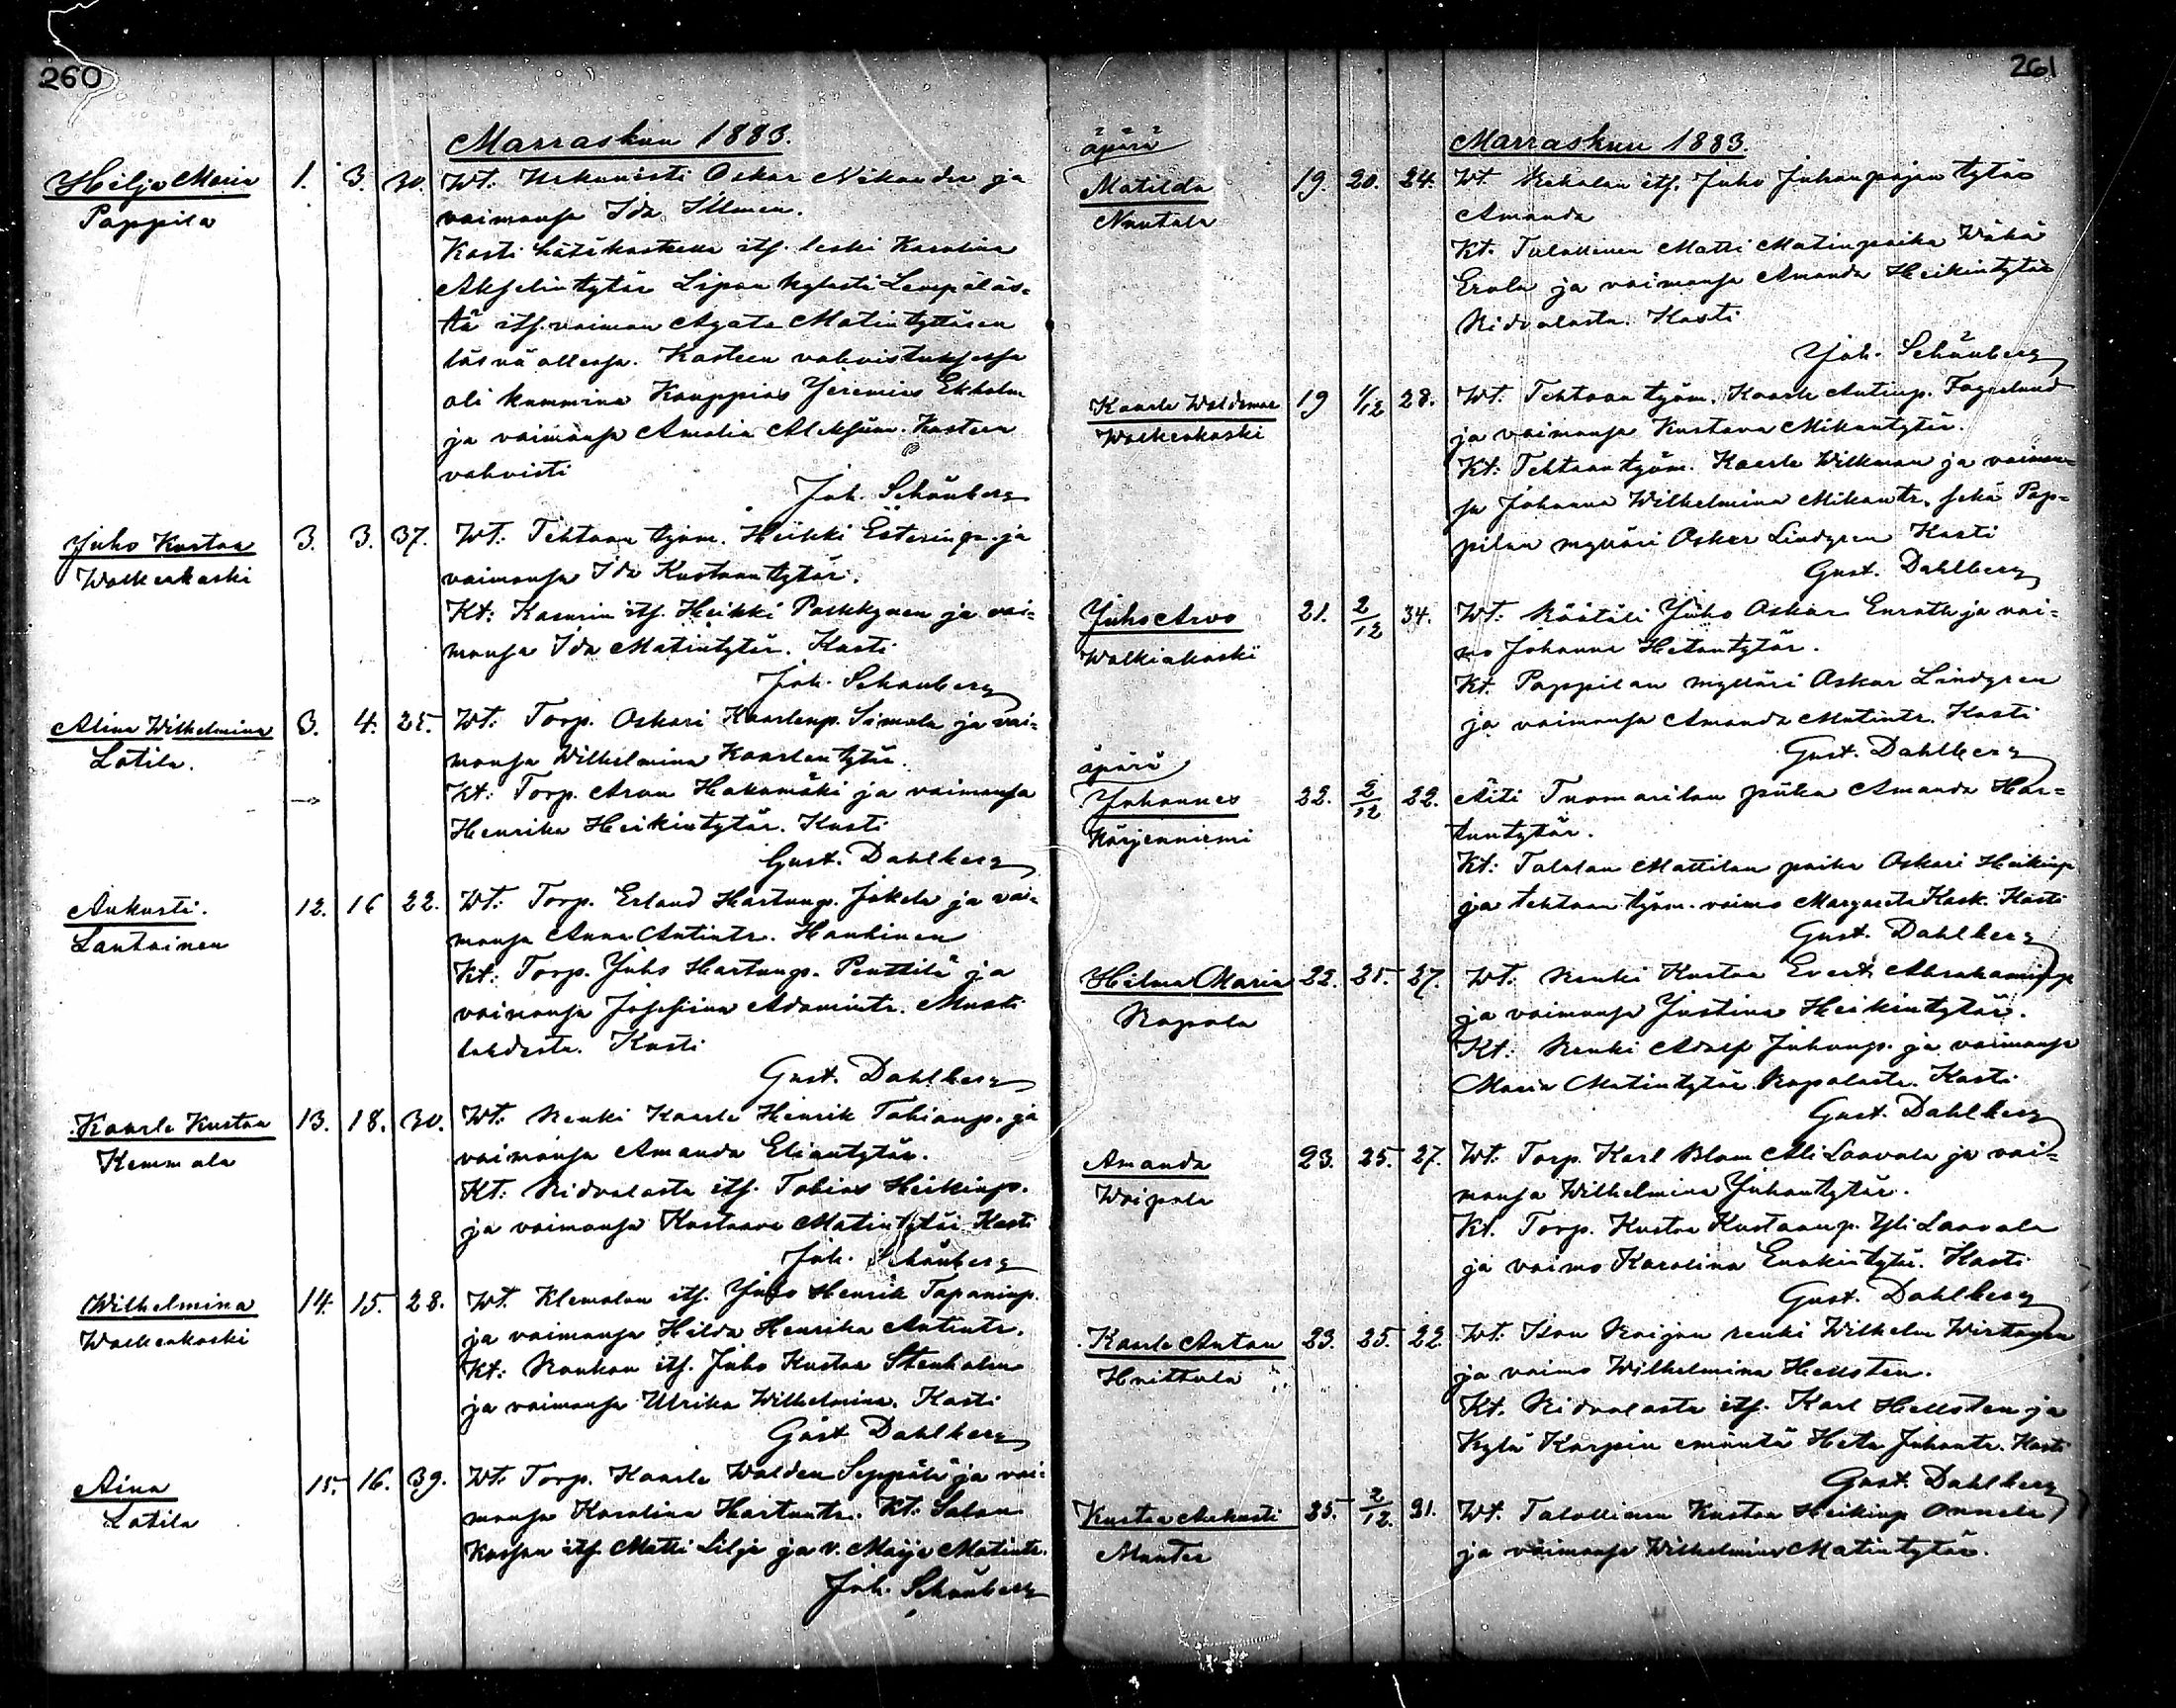 260
Marraskuu 1883.
Hilja Maria 1. 3. 30. Wt. Urkunisti Oskar Nikander ja
Pappila vaimonsa Ida Illmen.
Kasti hätäkasteella itsl. leski Karolina
Akselintytär Lipon kylästi Lempääläs-
tä itsl. vaimon Agata Matintyttären
läsnä ollessa. Kasteen vahvistuksessa
oli kummina Kauppias Jeremias Ekholm
ja vaimonsa Amalia Kasteen
vahvisti
Joh. Schönberg
Juho Kustaa 3. 3. 37. Wt. Tehtaan työm. Heikki Esterinp. ja
Walkeakoski vaimonsa Ida Kustaantytär.
Kt: Kasurin itsl. Heikki Paskkynen ja vai-
monsa Ida Matintytär. Kasti
Joh. Schönberg
Alina Wilhelmina 3. 4. 25. Wt: Torp. Oskari Kaarlenp. Simola ja vai-
Lotila. monsa Wilhelmina Kaarlentytär.
Kt: Torp. Aron Hakamäki ja vaimonsa
Henrika Heikintytär. Kasti
Gust. Dahlberg
Aukusti. 12. 16 22. Wt: Torp. Erland Hartunp. Jokela ja vai-
Lantoinen monsa Anna Antintr. Hankinen
Kt: Torp. Juho Hartunp. Penttilä ja
vaimonsa Josefiina Adamintr. Musti
lahdesta. Kasti
Gust. Dahlberg
Kaarle Kustaa 13. 18. 30. Wt: Renki Kaarle Henrik Tobianp. ja
Kemmola vaimonsa Amanda Eliantytär.
Kt: Ridvalasta itsl. Tobias Heikinp.
ja vaimonsa Kustaava Matintytär Kasti
Joh. Schönberg
Wilhelmina 14. 15. 28. Wt. Klemolan itsl. Juho Henrik Tapaninp.
Walkeakoski ja vaimonsa Hilda Henrika Antintr.
Kt: Raukon itsl. Juho Kustaa Stenholm
ja vaimonsa Ulrika Wilhelmina. Kasti
Gust Dahlberg
Aina 15. 16. 39. Wt: Torp. Kaarle Walden Seppälä ja vai-
Lotila monsa Karolina Hartuntr. Kt. Salon
itsl. Matti Lilja ja v. Maija Matintr.
Joh. Schönberg
261
Marraskuu 1883.
äpärä
Matilda 19. 20. 24. Wt. Rekolan itsl. Juho Juhanpojan tytär
Nuutala Amanda
Kt. Talollinen Matti Matinpoika Wähä
Erola ja vaimonsa Amanda Heikintytär
Ridvalasta. Kasti
Joh. Schönberg
Kaarle Waldemar 19 1/12 28. Wt. Tehtaan työm. Kaarle Antinp. Fagerlund
Walkeakoski ja vaimonsa Kustava Mikontytär.
Kt: Tehtaan työm. Kaarle Willman ja vaimon-
sa Johanna Wilhelmina Mikontr. sekä Pap-
pilan mylläri Oskar Lindgren Kasti
Gust. Dahlberg
Juho Arvo 21. 2/12 34. Wt: Räätäli Juho Oskar Enroth ja vai-
Walkiakoski mo Johanna Hetantytär.
Kt. Pappilan mylläri Oskar Lindgren
ja vaimonsa Amanda Matintr. Kasti
Gust. Dahlberg
äpärä
Johannes 22. 2/12 22. Äiti Tuomarilan piika Amanda Har-
Kärjenniemi tuntytär.
Kt: Talolan Mattilan poika Oskari Heikinp.
ja tehtaan työm. vaimo Margareta Kask. Kasti
Gust. Dahlberg
Hilma Maria 22. 25. 27. Wt: Renki Kustaa Evert Abrahaminp.
Rapola ja vaimonsa Justina Heikintytär.
Kt: Renki Adolf Juhanp. ja vaimonsa
Maria Matintytär Rapolasta. Kasti
Gust. Dahlberg
Amanda 23. 25. 27. Wt: Torp. Karl Blom Ali Laavola ja vai-
Woipala monsa Wilhelmina Juhontytär.
Kt. Torp. Kustaa Kustaanp. Yli Laavola
ja vaimo Karolina Enokintytär. Kasti
Gust. Dahlberg
Kaarle Anton 23. 25. 22. Wt: Ison Roijon renki Wilhelm Wirtanen
Huittula ja vaimo Wilhelmina Hellsten.
Kt. Ridvalasta itsl. Karl Hellsten ja
Kylä Korpin emäntä Heta Juhontr. Kasti
Gust. Dahlberg
Kustaa Aukusti 25. 2/12. 31. Wt. Talollinen Kustaa Heikinp. Annala
Muntee ja vaimonsa Wilhelmina Matintytär.